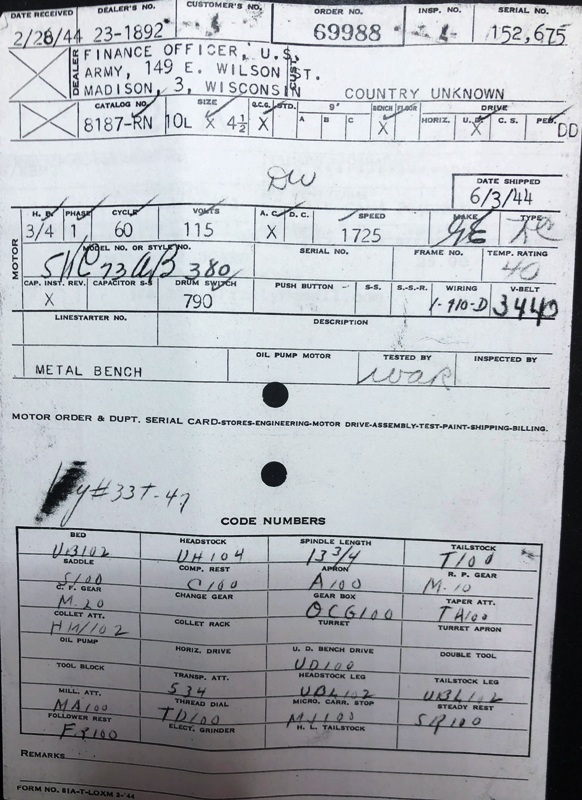 DATE RECEIVED DEALER'S NO. CUSTOMER'S NO. ORDER NO. INSP. NO. SERIAL NO.
2/28/44 23-1892 69988 152,675
DEALER CUST.
FINANCE OFFICER, U.S.
ARMY, 149 E. WILSON ST.
MADISON, 3, WISCONSIN COUNTRY UNKNOWN
CATALOG NO. SIZE Q.C.G. STD. 9" BENCH FLOOR DRIVE
A B C HORIZ. U.D. C.S. PED.
8187-RN 10L X 4½ X X X DD
DW
DATE SHIPPED
6/3/44
MOTOR
H.P. PHASE CYCLE VOLTS A.C. D.C. SPEED MAKE TYPE
3/4 1 60 115 X 1725 GE KC
MODEL NO. OR STYLE NO. SERIAL NO. FRAME NO. TEMP. RATING
5KC73AB380 40
CAP. INST. REV. CAPACITOR S-S DRUM SWITCH PUSH BUTTON S-S. S.-S.-R. WIRING V-BELT
X 790 1-910-D 3440
LINESTARTER NO. DESCRIPTION
OIL PUMP MOTOR TESTED BY INSPECTED BY
METAL BENCH
MOTOR ORDER & DUPT. SERIAL CARD-STORES-ENGINEERING-MOTOR DRIVE-ASSEMBLY-TEST-PAINT-SHIPPING-BILLING.
#33T-47
CODE NUMBERS
BED HEADSTOCK SPINDLE LENGTH TAILSTOCK
UB102 UH104 13 3/4 T100
SADDLE COMP. REST APRON R. P. GEAR
S100 C100 A100 M-10
C.F. GEAR CHANGE GEAR GEAR BOX TAPER ATT.
M-20 QCG100 TA100
COLLET ATT. COLLET RACK TURRET TURRET APRON
OIL PUMP HORIZ. DRIVE U. D. BENCH DRIVE DOUBLE TOOL
UD100
TOOL BLOCK TRANSP. ATT. HEADSTOCK LEG TAILSTOCK LEG
534 UBL102 UBL102
MILL. ATT. THREAD DIAL MICRO. CARR. STOP STEADY REST
MA100 TD100 SR100
FOLLOWER REST ELECT. GRINDER H. L. TAILSTOCK
FR100
REMARKS
FORM NO. 81A-T-LOXM 2-'44